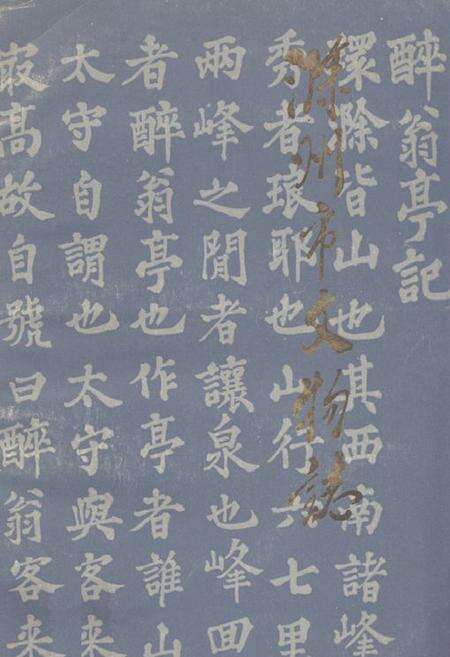 醉翁亭記
環滁皆山也其西南諸峰
秀者琅耶也山行六七里
兩峰之間者讓泉也峰回
者醉翁亭也作亭者誰山
太守自謂也太守與客来
最高故自號曰醉翁客来
滁州市文物誌